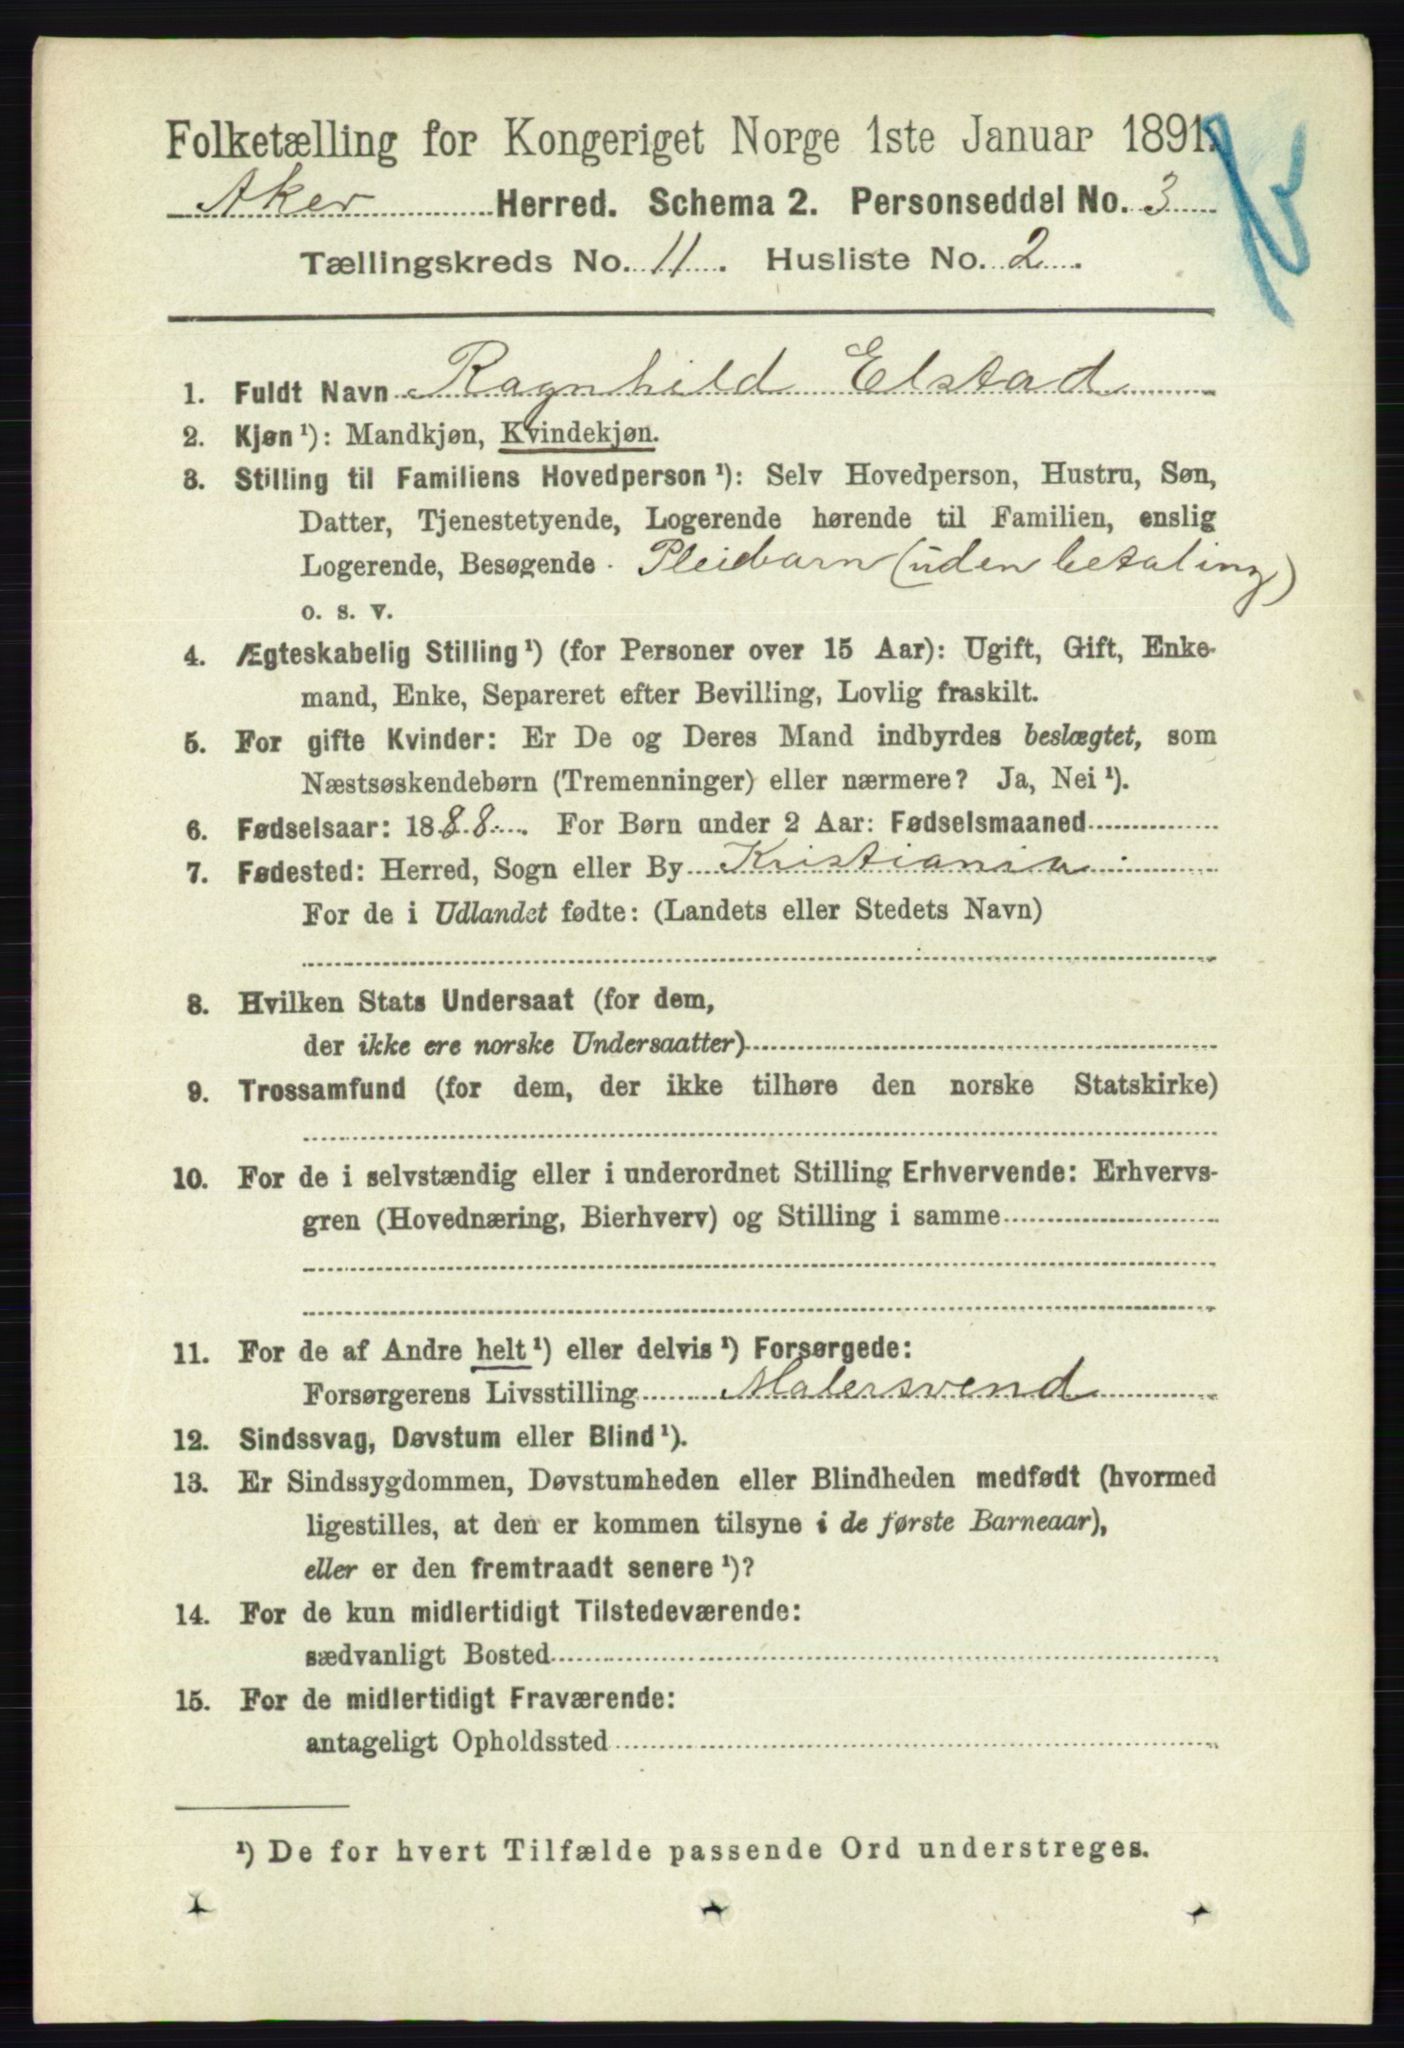 Folketælling for Kongeriget Norge 1ste Januar 1891.
Aker Herred. Schema 2. Personseddel No. 3
Tællingskreds No. 11. Husliste No. 2.
1. Fuldt Navn Ragnhild Elstad
2. Kjøn ¹): Mandkjøn, Kvindekjøn.
3. Stilling til Familiens Hovedperson ¹): Selv Hovedperson, Hustru, Søn,
Datter, Tjenestetyende, Logerende hørende til Familien, enslig
Logerende, Besøgende Pleiebarn (uden betaling)
o. s. v.
4. Ægteskabelig Stilling ¹) (for Personer over 15 Aar): Ugift, Gift, Enke-
mand, Enke, Separeret efter Bevilling, Lovlig fraskilt.
5. For gifte Kvinder: Er De og Deres Mand indbyrdes beslægtet, som
Næstsøskendebørn (Tremenninger) eller nærmere? Ja, Nei ¹).
6. Fødselsaar: 1888. For Børn under 2 Aar: Fødselsmaaned
7. Fødested: Herred, Sogn eller By Kristiania
For de i Udlandet fødte: (Landets eller Stedets Navn)
8. Hvilken Stats Undersaat (for dem,
der ikke ere norske Undersaatter)
9. Trossamfund (for dem, der ikke tilhøre den norske Statskirke)
10. For de i selvstændig eller i underordnet Stilling Erhvervende: Erhvervs-
gren (Hovednæring, Bierhverv) og Stilling i samme
11. For de af Andre helt ¹) eller delvis ¹) Forsørgede:
Forsørgerens Livsstilling Malersvend
12. Sindssvag, Døvstum eller Blind ¹).
13. Er Sindssygdommen, Døvstumheden eller Blindheden medfødt (hvormed
ligestilles, at den er kommen tilsyne i de første Barneaar),
eller er den fremtraadt senere ¹)?
14. For de kun midlertidigt Tilstedeværende:
sædvanligt Bosted
15. For de midlertidigt Fraværende:
antageligt Opholdssted
¹) De for hvert Tilfælde passende Ord understreges.